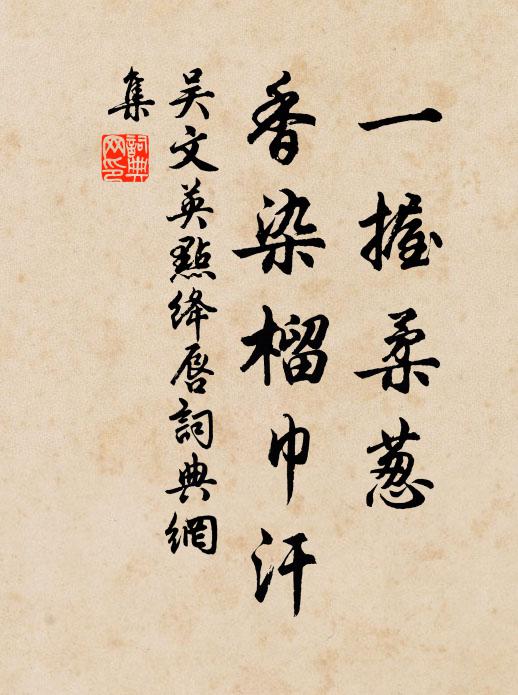 一握柔葱
香染榴巾汗
吴文英點绛唇詞典網
集
詞典网印